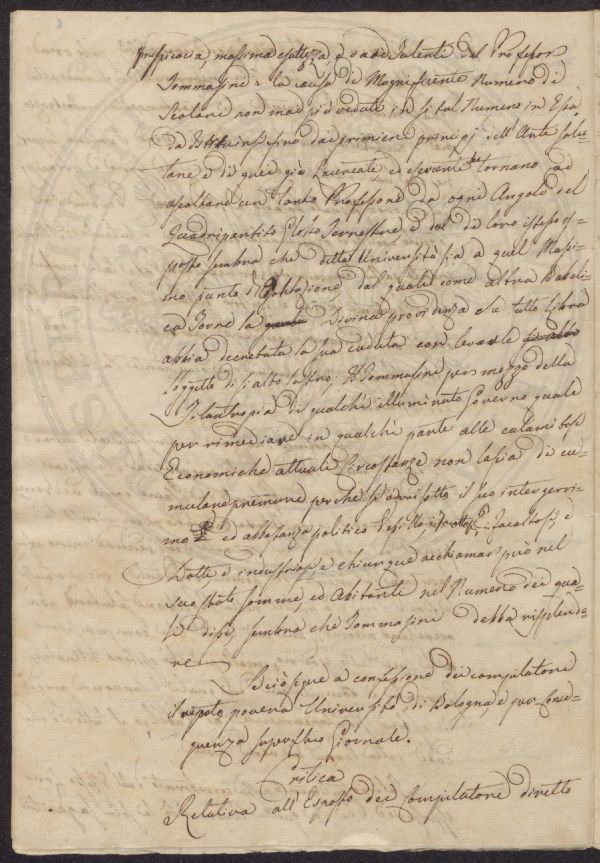 massima esattezza e rari Talenti del Professor
Tommasini e la causa di Magnificente Numero di
Scolari non mai più veduto in sì bel Numero in Essa
da fino dai primieri principj dell'Arte Salu-
tare e di quei già Laureate ed esercenti tornano ad
ascoltare un tanto Professore da ogni Angolo del
Quadripartito Globo Terrestre, e dal di loro istesso es-
posto sembra che detta Università sia a quel Massi-
mo punto d'Esaltazione dal quale come altra Babeli-
ca Torre la Divina providenza che tutto libra
abbia decretata la sua caduta con levarle
soggetto di sì alto lustro, il Tommasini per mezzo della
Filantropia di qualche illuminato Governo quale
per rimediare in qualche parte alle calamitose
Economiche attuale Circostanze non lascia di cu-
mulare premure perche si adori sotto il suo intergerri-
mo ed abbastanza politico Facoltosi, e
Dotti e industriosi e chiunque acchiamar può nel
suo stato somme, ed Abitanti nel Numero dei qua-
li dissi, sembra che Tommasini debba risplende-
re
Ciò segue a confessione dei compilatore
il repeto povera Università di Bologna, e per Conse-
guenza superfluo Giornale.
Critica
Relativa all'Esposto dei Compilatore diretto